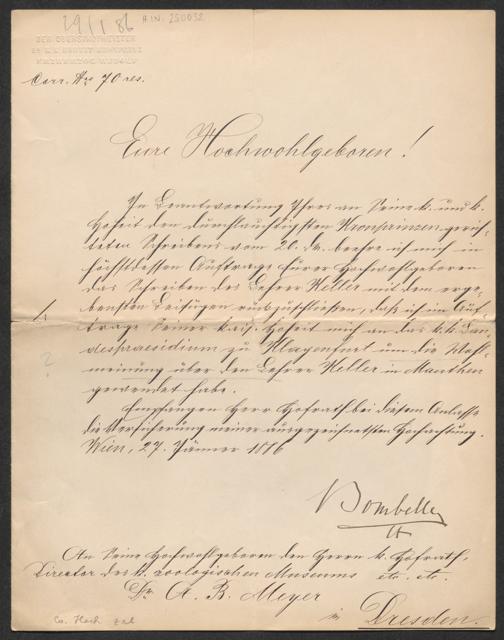 29/1 86
A.I.N. 250032
DER OBERSTHOFMEISTER
KRONPRINZEN RUDOLF
Corr. Nro 70 res.
Eure Hochwohlgeboren!
In Beantwortung Ihres an Seine k. und k.
Hoheit den durchlauchtigsten Kronprinzen gerich-
teten Schreibens vom 20. d. M. beehre ich mich in
höchstdessen Auftrage Eurer Hochwohlgeboren
das Schreiben des Lehrer Keller mit dem erge-
bensten Beifügen rückzuschließen, daß ich im Auf-
trage Seiner kais. Hoheit mich an das k. k. Lan-
despraesidium zu Klagenfurt um die Wohl-
meinung über den Lehrer Keller in Mauthen
gewendet habe.
Empfangen Herr Hofrath bei diesem Anlasse
die Versicherung meiner ausgezeichnetsten Hochachtung.
Wien, 27. Jänner 1886
Bombelles
An Seine Hochwohlgeboren den Herrn k. Hofrath,
Director des k. zoologischen Museums etc. etc.
Dr. A. B. Meyer
in Dresden.